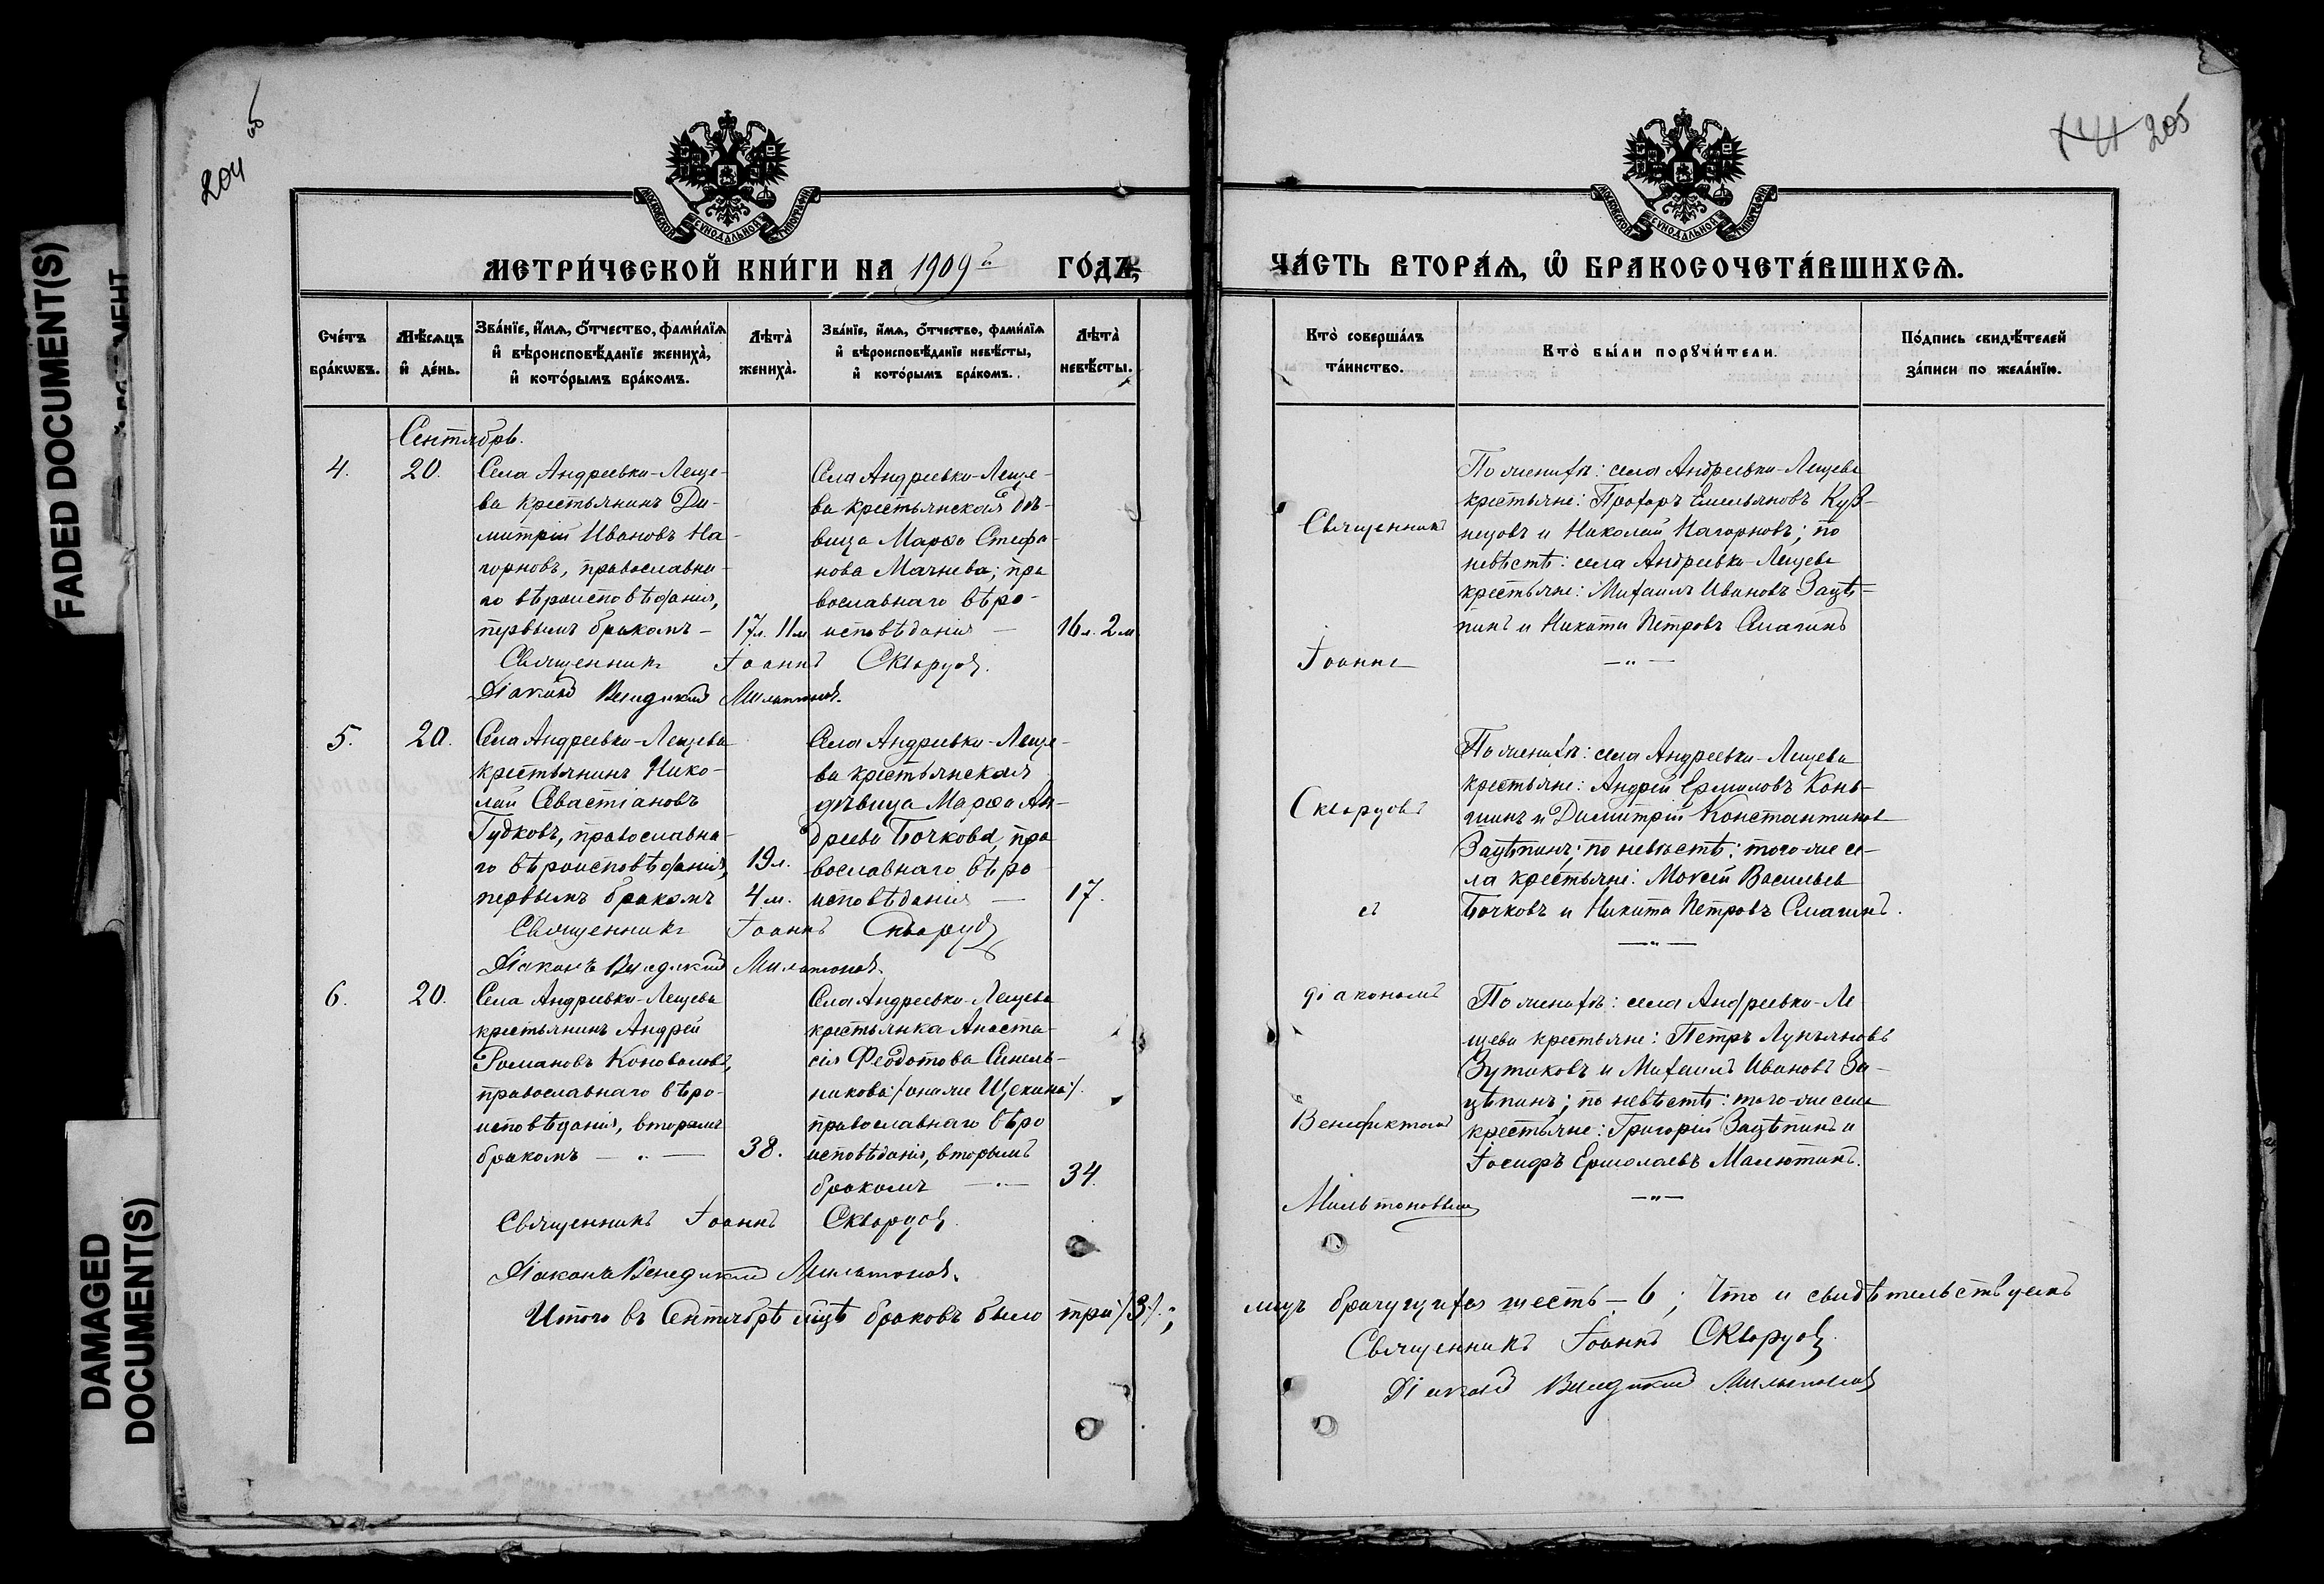 FADED DOCUMENT(S)
DAMAGED
DOCUMENT(S)
204 об
МЕТРИ́ЧЕСКОЙ КНИ́ГИ НА 1909й ГО́ДЪ,
Сче́тъ бра́кѡвъ.
Мѣ́сѧцъ и҆ де́нь.
Зва́нїе, и҆́мѧ, ѻ҆́тчество, фами́лїѧ и҆ вѣроисповѣ́данїе жениха̀, и҆ кото́рымъ бра́комъ.
Лѣта̀ жениха̀.
Зва́нїе, и҆́мѧ, ѻ҆́тчество, фами́лїѧ и҆ вѣроисповѣ́данїе невѣ́сты, и҆ кото́рымъ бра́комъ.
Лѣта̀ невѣ́сты.
Сентябрь.
4.
20.
Села Андреевки-Леще-
ва крестьянинъ Ди-
митрій Ивановъ На-
горновъ, православна-
го вѣроисповѣданія,
первымъ бракомъ –
17л. 11м
Села Андреевки-Леще-
ва крестьянская дѣ-
вица Марѳа Стефа-
нова Мачнева; пра
вославнаго вѣро-
исповѣданія —
16л. 2м
Священникъ Іоаннъ Скворцовъ.
Діаконъ Венедиктъ Мильтоновъ.
5.
20.
Села Андреевки-Лещева
крестьянинъ Нико-
лай Севастіановъ
Гудковъ, православна-
го вѣроисповѣданія,
первымъ бракомъ
19л.
4м.
Села Андреевки-Леще-
ва крестьянская
дѣвица Марѳа Ан-
дреева Бочкова, пра
вославнаго вѣро
исповѣданія —
17.
Священникъ Іоаннъ Скворцовъ
Діаконъ Венедиктъ Мильтоновъ.
6.
20.
Села Андреевки-Лещева
крестьянинъ Андрей
Романовъ Коноваловъ,
православнаго вѣро-
исповѣданія, вторымъ
бракомъ — . —
38.
Села Андреевки-Лещева
крестьянка Анаста-
сія Ѳеодотова Синель-
никова /: она же Щекина :/.
православнаго вѣро
исповѣданія, вторымъ
бракомъ — . —
34.
Священникъ Іоаннъ Скворцовъ.
Діаконъ Венедиктъ Мильтоновъ.
Итого въ Сентябрѣ мцѣ браковъ было три /:3:/. ;
205
ЧА́СТЬ ВТОРА́Ѧ, Ѽ БРАКОСОЧЕТА́ВШИХСѦ.
Кто̀ соверша́лъ та́инство.
Кто̀ бы́ли порꙋчи́тели.
По́дпись свидѣ́телей за́писи по жела́нїю.
Священникъ
Іоаннъ
Скворцовъ
съ
діакономъ
Венедиктомъ
Мильтоновымъ
По женихѣ: села Андреевки-Лещева
крестьяне: Прохоръ Емельяновъ Куз-
нецовъ и Николай Нагорновъ; по
невѣстѣ: села Андреевки-Лещева
крестьяне: Михаилъ Ивановъ Зацѣ-
пинъ и Никита Петровъ Смагинъ
— „ —
По женихѣ: села Андреевки-Лещева
крестьяне: Андрей Ермиловъ Конь-
шинъ и Димитрій Константиновъ
Зацѣпинъ; по невѣстѣ: того-же се-
ла крестьяне: Моѵсей Васильевъ
Бочковъ и Никита Петровъ Смагинъ.
— „ —
По женихѣ: села Андреевки-Ле
щева крестьяне: Петръ Лукьяновъ
Зутиковъ и Михаилъ Ивановъ За-
цѣпинъ; по невѣстѣ: того-же села
крестьяне: Григорій Зацѣпинъ и
Іосифъ Ермолаевъ Малютинъ.
— „ —
лицъ брачущихся шесть – 6; Что и свидѣтельствуемъ
Священникъ Іоаннъ Скворцовъ.
Діаконъ Венедиктъ Мильтоновъ